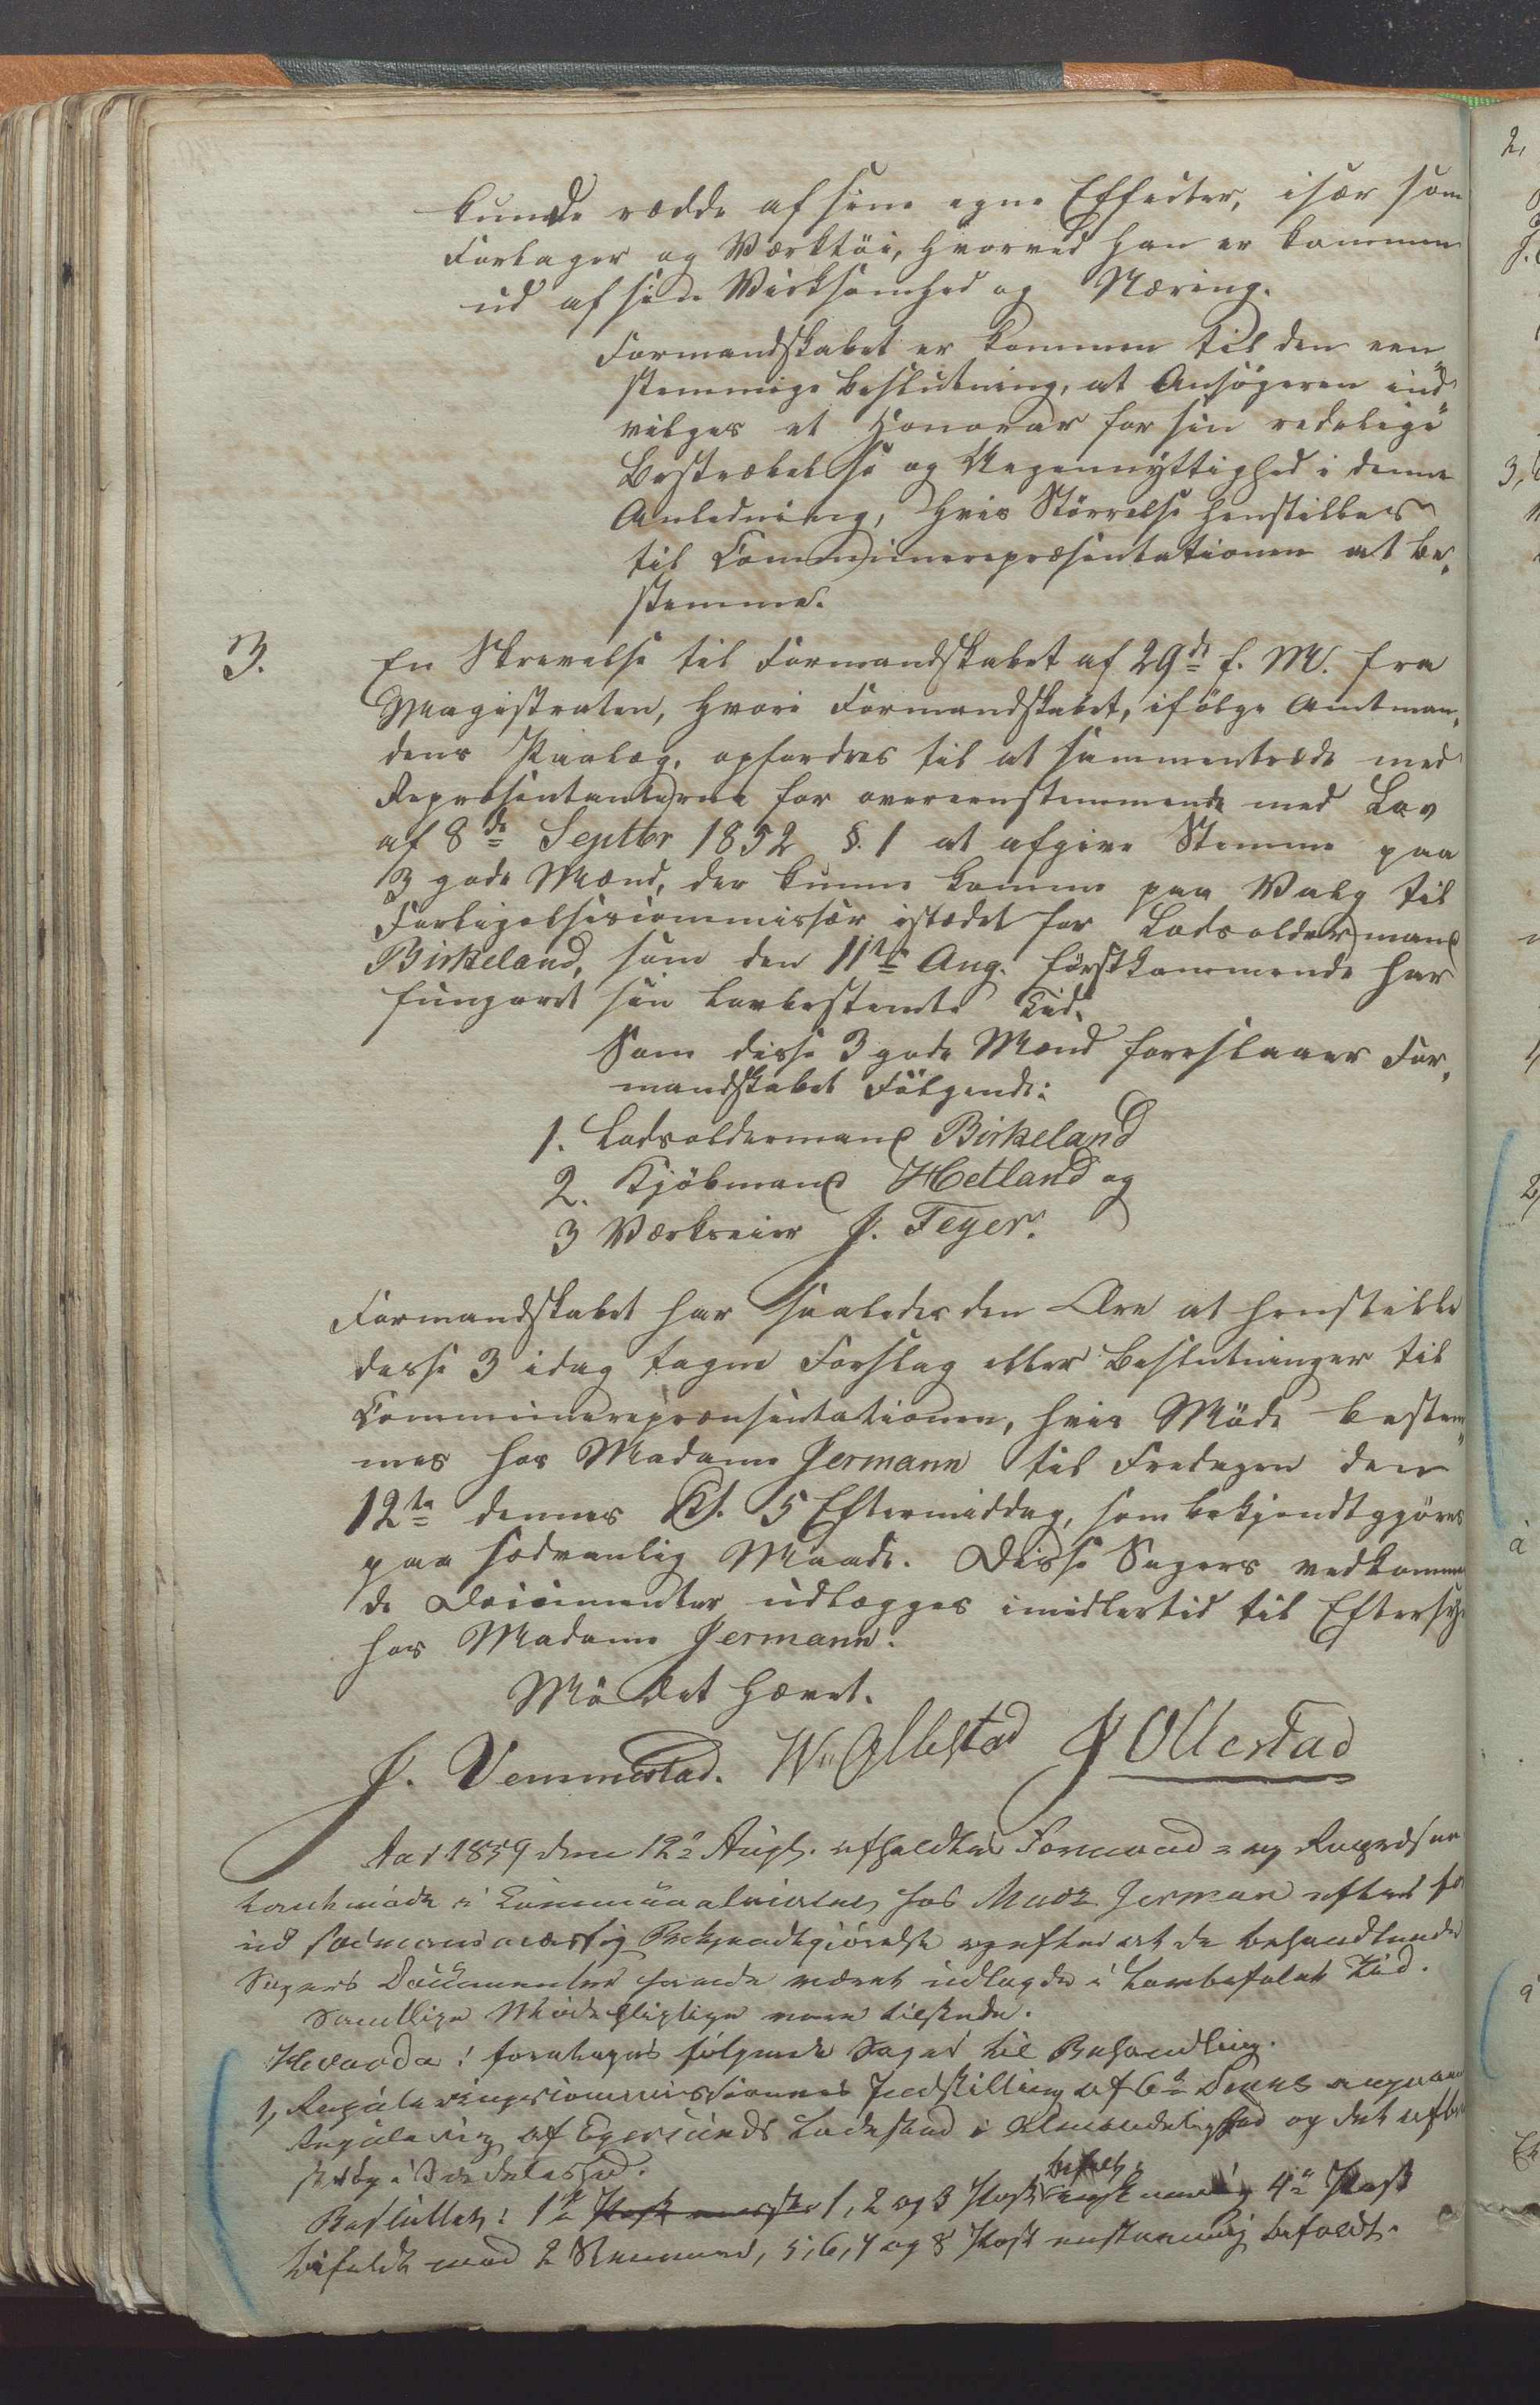 kunde redde af sine egne Effecter, især som
Forlager og Værktöi, hvorved han er kommen
ud af sin Virksomhed og Næring.
Formandskabet er kommen til den een
stemmige Beslutning, at Ansögeren ind„
vilges et Honorar for sin redelige
Bestræbelse og Uegennyttighed i denne
Anledning, hvis Störrelse henstilles
til Communerepræsentationen at be„
stemme.
3.
En Skrivelse til Formandskabet af 29de f. M. fra
Magistraten, hvori Formandskabet, ifölge Amtman„
dens Paalæg, opfordres til at sammentræde med
Repræsentanterne for overeenstemmende med Lov
af 8de Septbr 1852 §. 1 at afgive Stemme paa
3 gode Mænd, der kunne komme paa Valg til
Forligelsescommissær istedet for Lodsoldermand
Birkeland, som den 11te Aug. förstkommende har
fungeret sin lovbestemte Tid.
Som disse 3 gode Mænd foreslaaer For„
mandskabet Fölgende:
1. Lodsoldermand Birkeland
2. Kjöbmand Hetland og
3 Værkseier J. Feyer.
Formandskabet har saaledes den Ære at henstille
disse 3 idag tagne Forslag eller Beslutninger til
Communerepræsentationen, hvis Möde bestem„
mes hos Madame Jermann til Fredagen den
12te dennes Kl. 5 Eftermiddag, som bekjendtgjöres
paa sædvanlig Maade. Disse Sagers vedkommen
de Documenter udlægges imidlertid til Eftersyn
hos Madame Jermann.
Mödet hævet.
J. Vemmestad. Wm Ollestad J Ollestad
Aar 1859 den 12te Augt. afholdtes Formand= og Repræsen
tantmöde i Communalværelset hos Mad. Jerman efter for
ud sædvansmæssig Bekjendtgjörelse og efter at de behandlende
Sagers Documenter havde været udlagde i lovbefalet Tid.
Samtlige Mödepligtige vare tilstede.
Hvorda: foretages fölgende Sager til Behandling.
1, Reguleringscommissionens Indstilling af 6te angaaende
Regulering af Egersunds Ladested i Almindelighed og det afbr
i Særdeleshed.
Besluttet: 1te Post 1, 2 og 3 Post bifaldt eenstemmig 4de Post
bifaldt mod 2 Stemmer, 5, 6, 7 og 8 Post eenstemmig bifaldt.